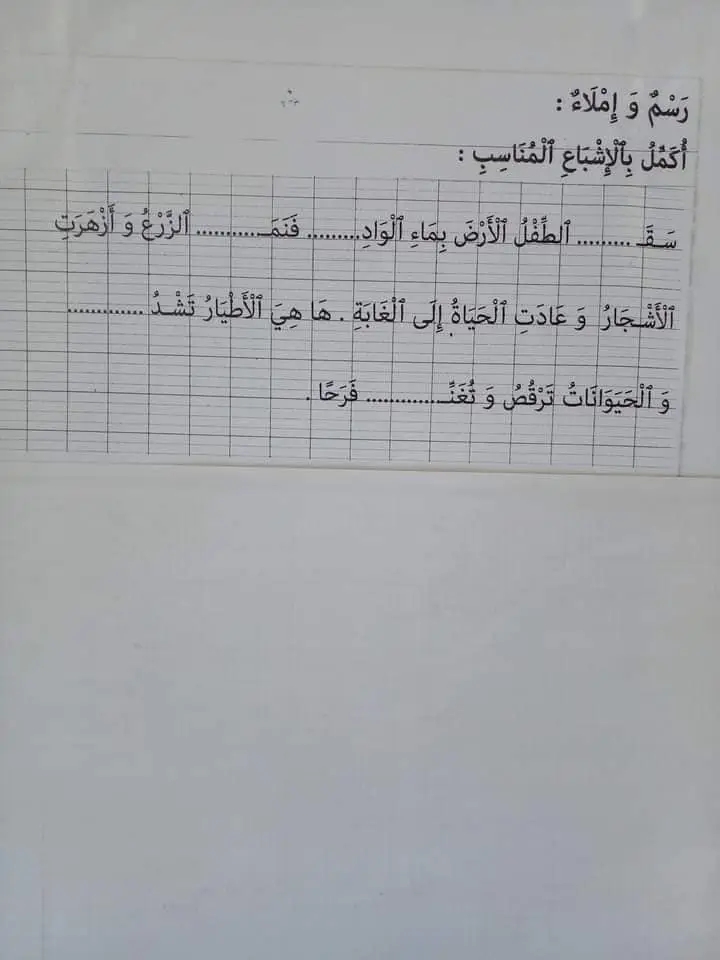 رَسْمٌ وَ إِمْلَاءٌ :
أُكَمِّلُ بِٱلْإِشْبَاعِ ٱلْمُنَاسِبِ :
سَـقَـ ......... ٱلطِّفْلُ ٱلْأَرْضَ بِمَاءِ ٱلْوَادِ......... فَنَمَـ............ ٱلزَّرْعُ وَ أَزْهَرَتِ
ٱلْأَشْـجَارُ وَ عَادَتِ ٱلْحَيَاةُ إِلَى ٱلْغَابَةِ . هَا هِيَ ٱلْأَطْيَارُ تَشْـدُ .............
وَ ٱلْحَيَوَانَاتُ تَرْقُصُ وَ تُغَنِّـ............. فَرَحًا .